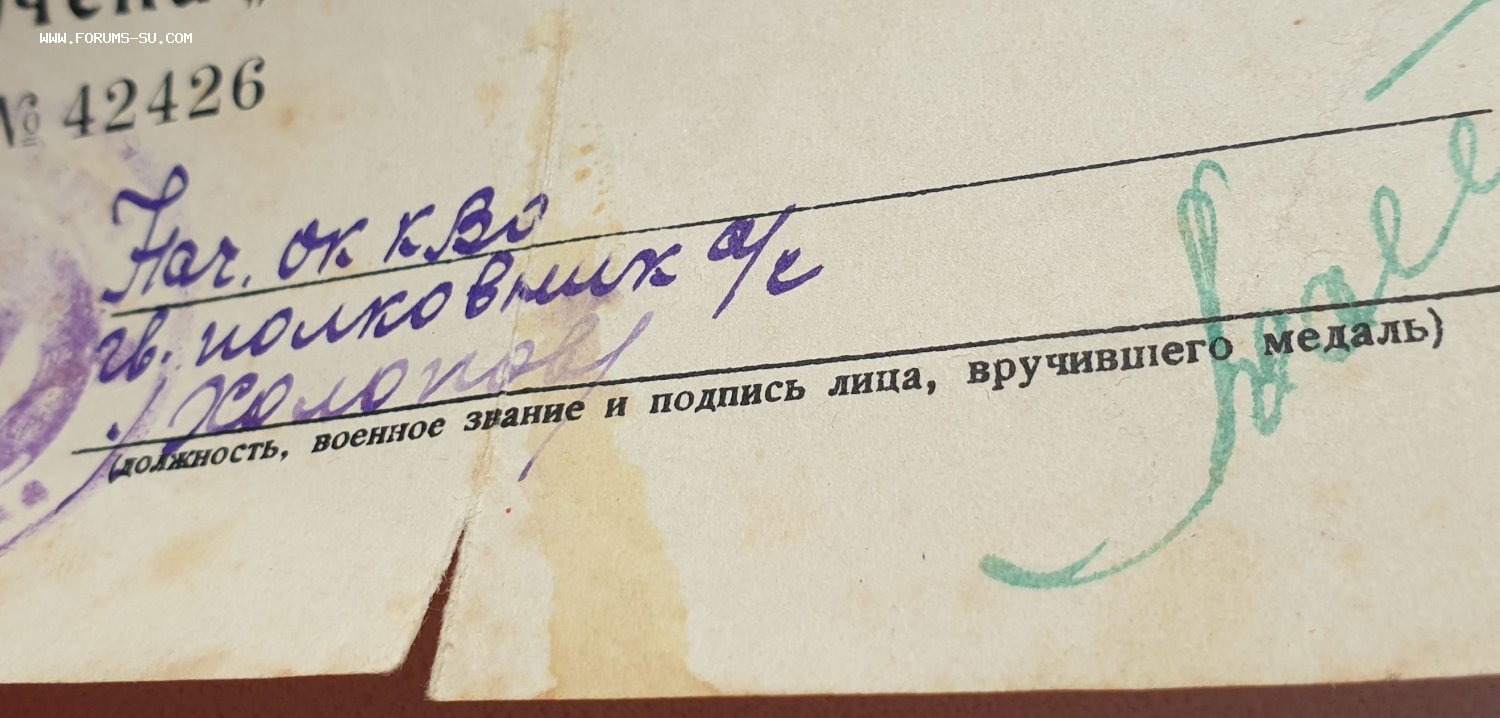 WWW.FORUMS-SU.COM
№ 42426
Нач. ОК КВО
гв. полковник а/с
Холопов
(должность, военное звание и подпись лица, вручившего медаль)